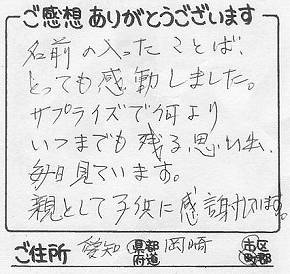 ご感想ありがとうございます
名前の入ったことば、
とっても感動しました。
サプライズで何より
いつまでも残る思い出、
毎日見ています。
親として子供に感謝しています。
ご住所 愛知 都道府県 岡崎 市区町郡